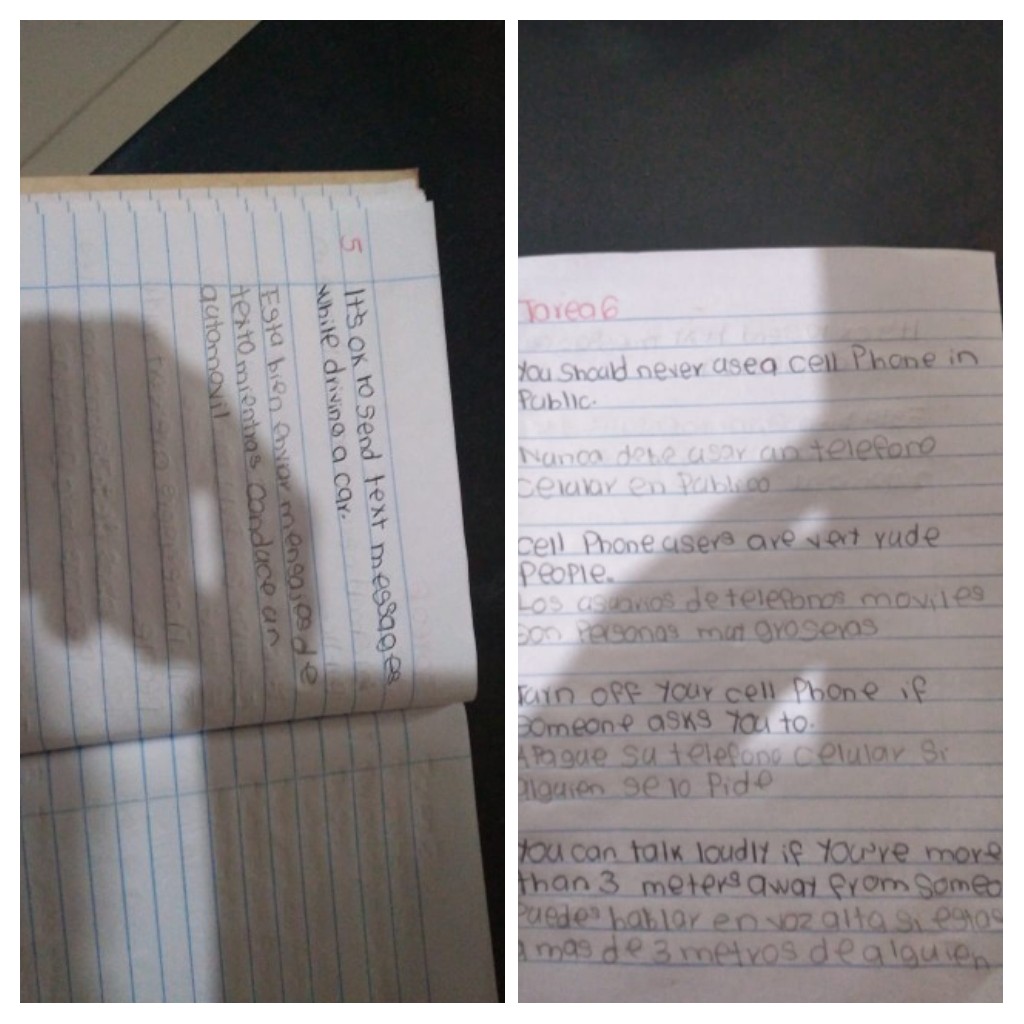 5 It's ok to send text messages
while driving a car.
Esta bien enviar mensajes de
texto mientras conduce un
automovil
Tarea 6
You should never use a cell Phone in
Public.
Nunca debe usar un telefono
celular en Publico
cell Phone users are very rude
People.
Los usuarios de telefonos moviles
son Personas muy groseras
Turn off your cell Phone if
someone asks you to.
Apague su telefono celular si
alguien se lo Pide
You can talk loudly if you're more
than 3 meters away from someo
Puedes hablar en voz alta si estas
a mas de 3 metros de alguien